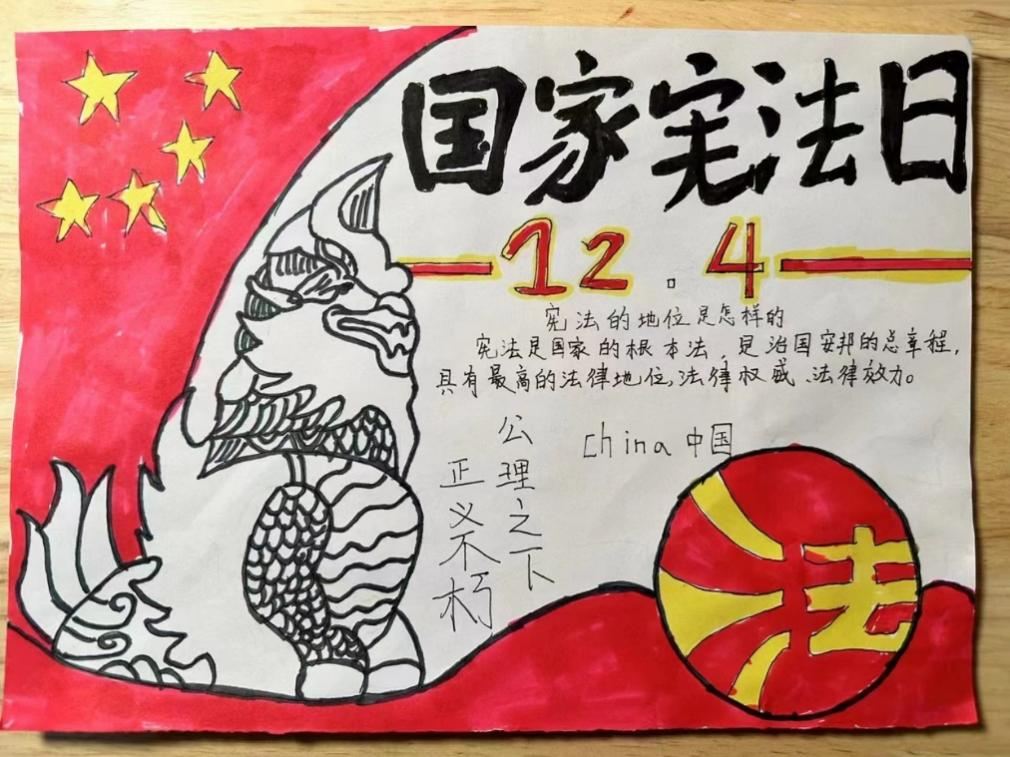 国家宪法日
12.4
宪法的地位是怎样的
宪法是国家的根本法，是治国安邦的总章程，
具有最高的法律地位、法律权威、法律效力。
公理之下
正义不朽
China 中国
法